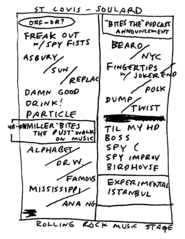 ST LOUIS - SOULARD
ORE-OR?
FREAK OUT
w/ SPY FISTS
ASBURY/
SUN/
REPLAC
DAMN GOOD
DRINK!
PARTICLE
MILLER "BITES
THE DUST" WALK
ON MUSIC
ALPHABET/
OR W/
FAMOUS
MISSISSIPPI/
ANA NG
"BITES THE" PODCAST
ANNOUNCEMENT
BEARD/
NYC
FINGERTIPS
w/ JOKER END
/POLK
DUMP/
TWIST
TIL MY HD
BOSS
SPY (
SPY IMPROV
BIRDHOUSE
EXPERIMENTAL
ISTANBUL
ROLLING ROCK MUSIC STAGE